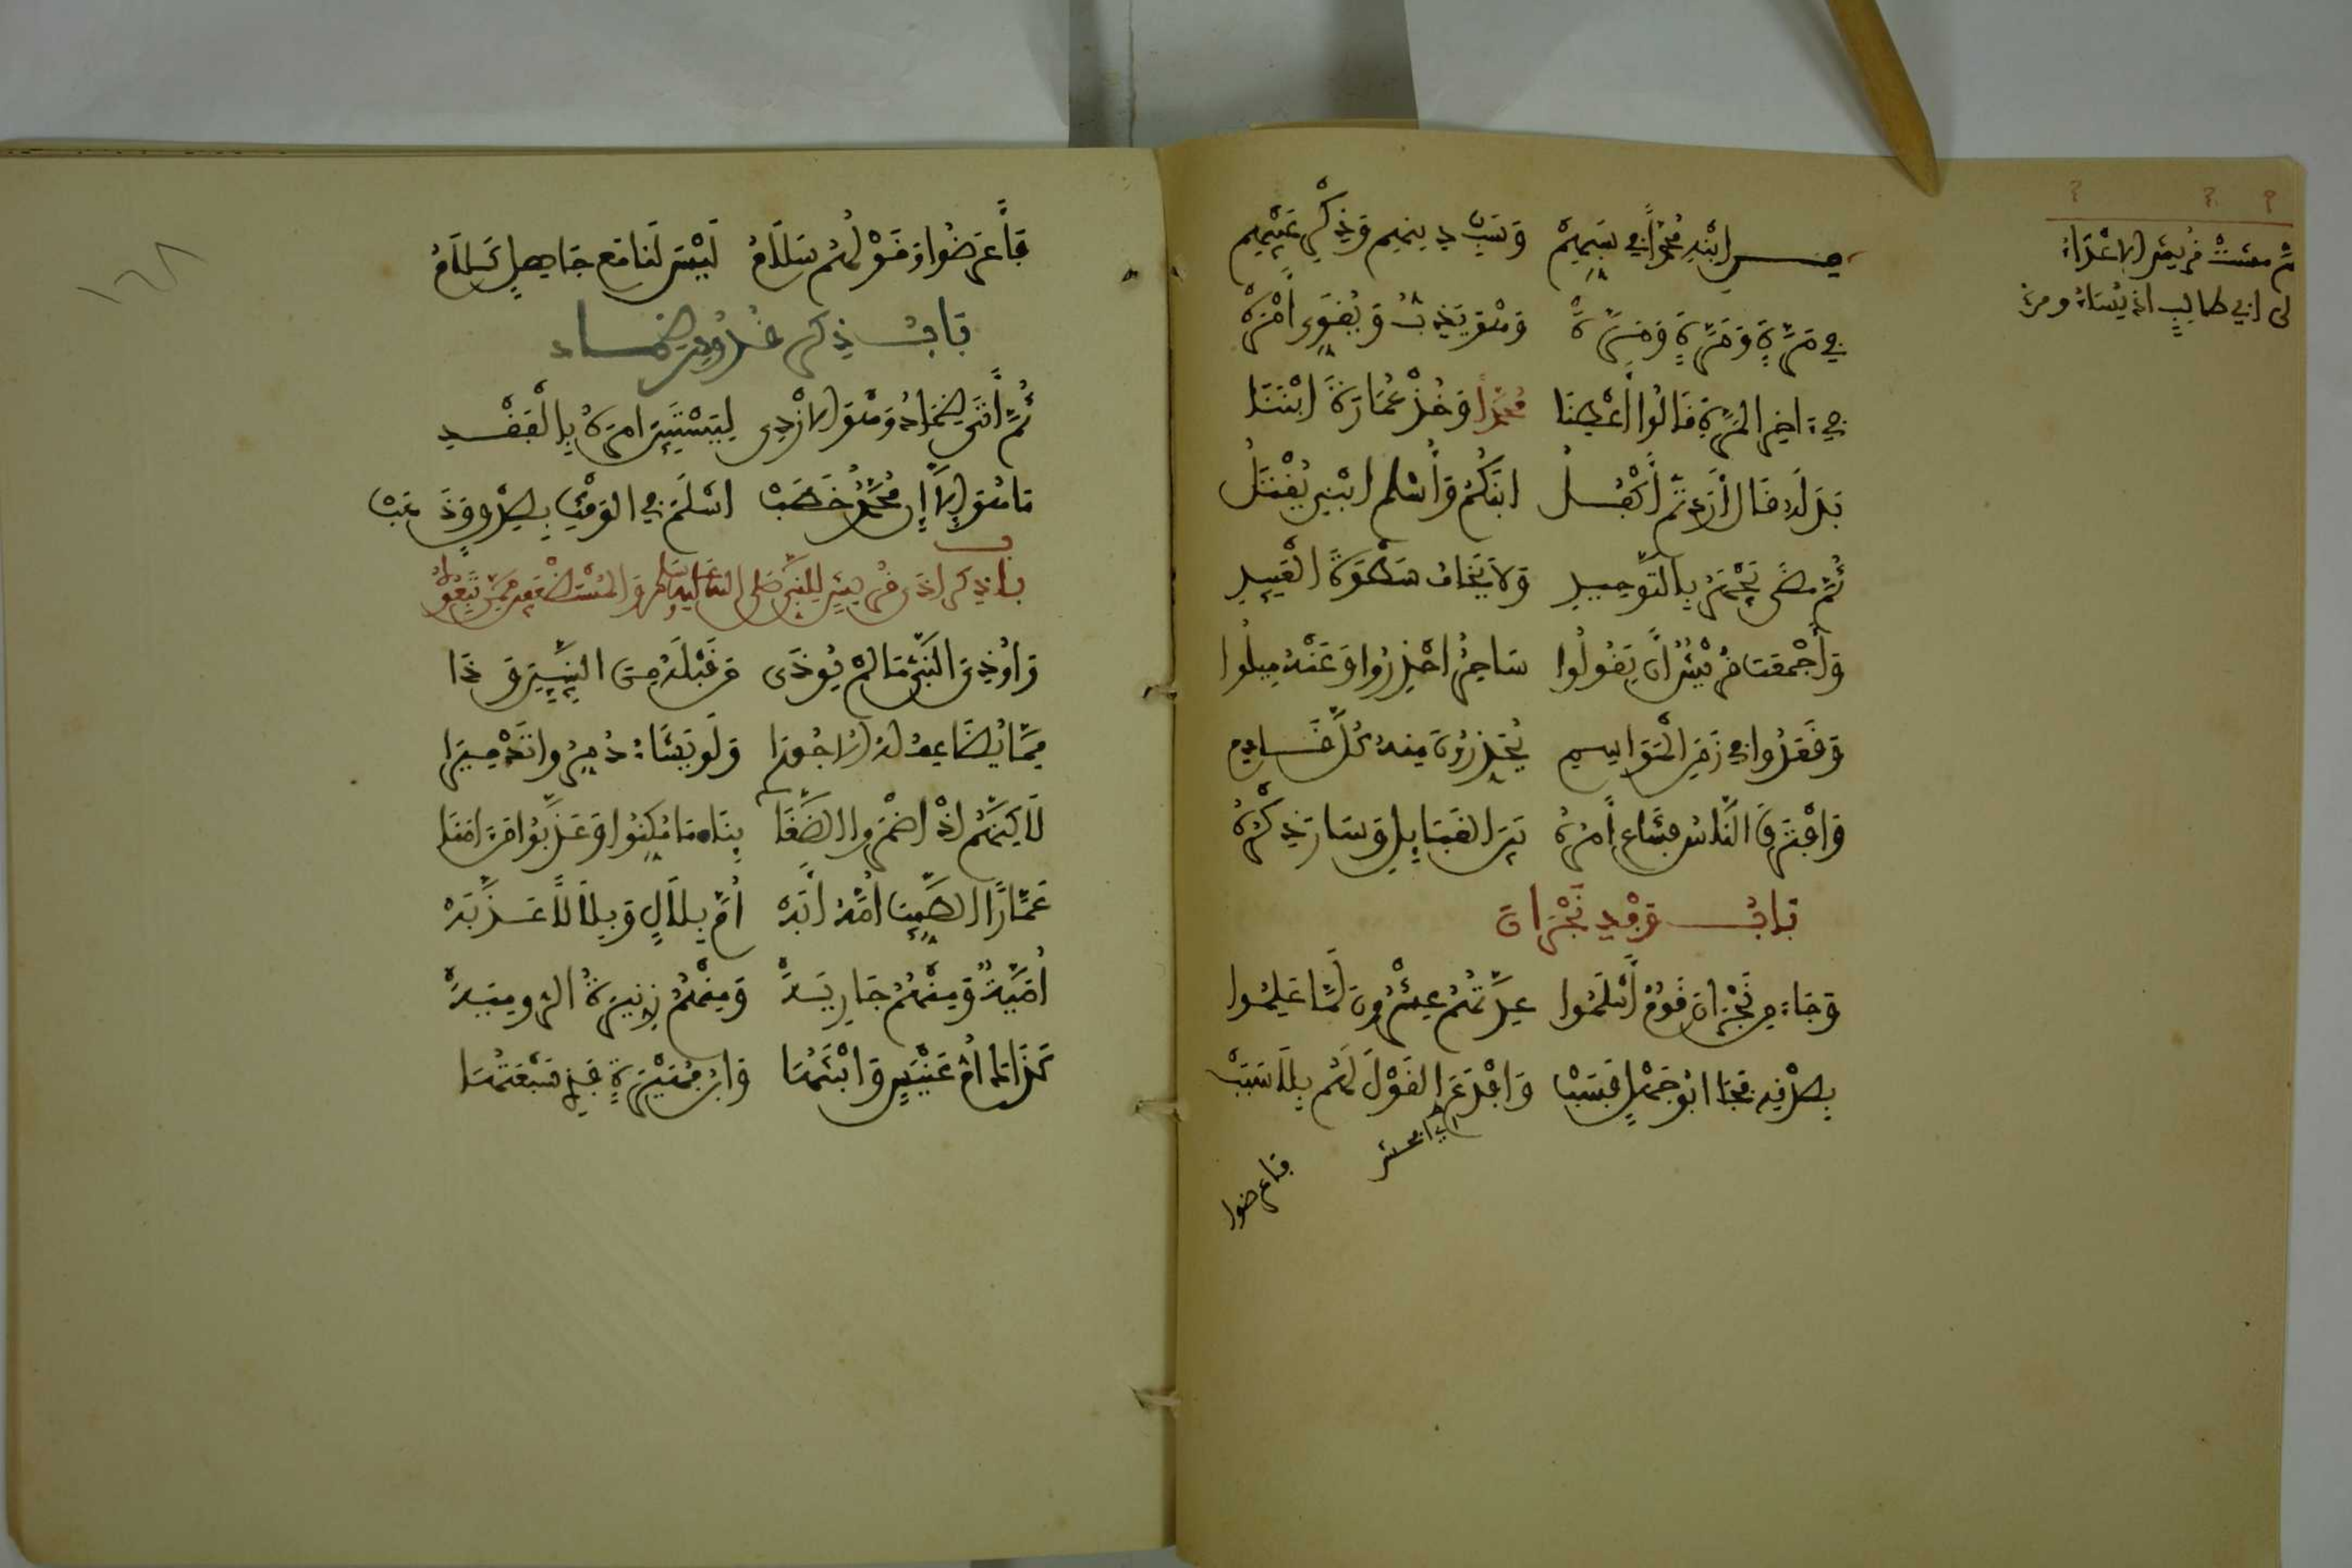 ثم مشت قريش الاعداء
لى ابي طالب ان يساء ومن
من ابنه محمد في سبهم وسب دينهم وذكر عيبهم
في مرة ومرة ومره وهو يذب ويقوي أمره
في ءاخر المرة قالوا أعطنا محمدا وخذ عمارة ابننا
بدله قال أردتم أكفل ابنكم وأسلم ابني يقتل
ثم مضى يجهر بالتوحيد ولا يخاف سطوة العبيد
وأجمعت قريش أن يقولوا ساحر احذروا وعنه ميلوا
وقعدوا في زمن المواسم يحذرون منه كل قادم
وافترق الناس فشاع أمره بين القبايل وسار ذكره
باب وفد نجران
وجاء من نجران قوم أسلموا عدتهم عشرون لما علموا
بصدقه فجا ابو جهل فسب واقذع القول لهم بلا سبب
فاعرضوا
فأعرضوا وقولهم سلام ليس لنا مع جاهل كلام
باب ذكر قدوم ضماد
ثم أتى ضماد وهو الازدي ليستبين امره بالنقد
ما هو إلا أن محمد خطب اسلم في الوقت بصدق وذهب
باب ذكر اذى قريش للنبي صلى الله عليه وسلم والمستضعفين ممن تبعه
واوذي النبي ما لم يوذى من قبله من النبيين وذا
مما يضاعف له الاجورا ولو يشاء دمروا تدميرا
لاكنهم اذ اضمروا الضغنا بناه ما مكنوا وعذبوا من ءامنا
عمارا الطيب امه أبه أم بلال وبلالا عذبه
أمية ومنهم جاريه ومنهم زنيرة الروميه
كذاك ام عنيس وابنتها وابن فهيرة فذي سبعتها
١٦٨